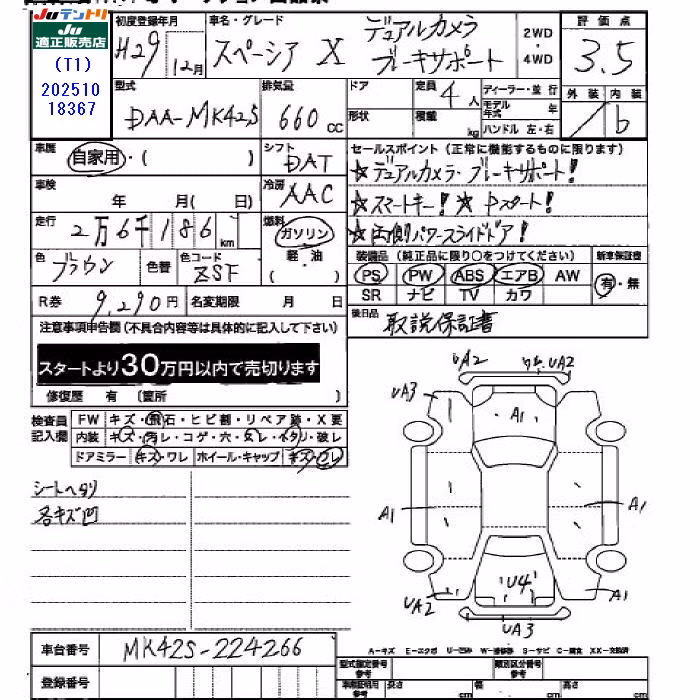 Juテントリ
JU
適正販売店
(T1)
202510
18367
初度登録年月
H29 12月
車名・グレード
スペーシア X デュアルカメラ
ブレーキサポート
2WD
・
4WD
評価点
3.5
外装 内装
b
型式
DAA-MK42S
排気量
660 cc
ドア
形状
定員 4人
積載 kg
ディーラー・並行
モデル年式 年
ハンドル 左・右
車歴
自家用・( )
シフト
DAT
セールスポイント(正常に機能するものに限ります)
☆デュアルカメラ・ブレーキサポート!
☆スマートキー! ☆Pスタート!
☆両側パワースライドドア!
車検
年 月( 日)
冷房
AAC
走行
2万6千186km
燃料
ガソリン
軽・油
( )
色
ブラウン
色替
色コード
ZSF
装備品(純正品に限り○をつけてください)
新車保証書
PS PW ABS エアB AW
有・無
SR ナビ TV カワ
R券 9,290円
名変期限 月 日
後日品 取説保証書
注意事項申告欄(不具合内容等は具体的に記入して下さい)
スタートより30万円以内で売切ります
修復歴 有 (箇所 )
検査員
記入欄
FW キズ・飛石・ヒビ割・リペア跡・X要
内装 キズ・汚レ・コゲ・穴・スレ・ヘタリ・破レ
ドアミラー キズ・ワレ ホイール・キャップ キズ・ワレ
シートヘタリ
各キズ凹
UA2
UA2
UA3
A1
A1
A1
U4
UA2
A1
UA3
車台番号 MK42S-224266
登録番号
A-キズ E-エクボ U-凹み W-補修跡 S-サビ C-腐食 XX-交換済
型式指定番号
参考
類別区分番号
参考
車両証明書
参考
長さ cm
幅 cm
高さ cm